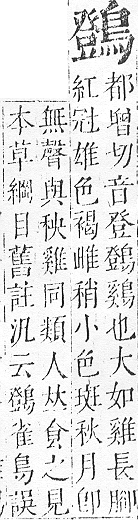 都增切音登鷄也大如雞長脚
紅冠雄色褐雌稍小色斑秋月卽
無聲與秧雞同類人炊食之見
本草綱目舊註汎云雀鳥誤